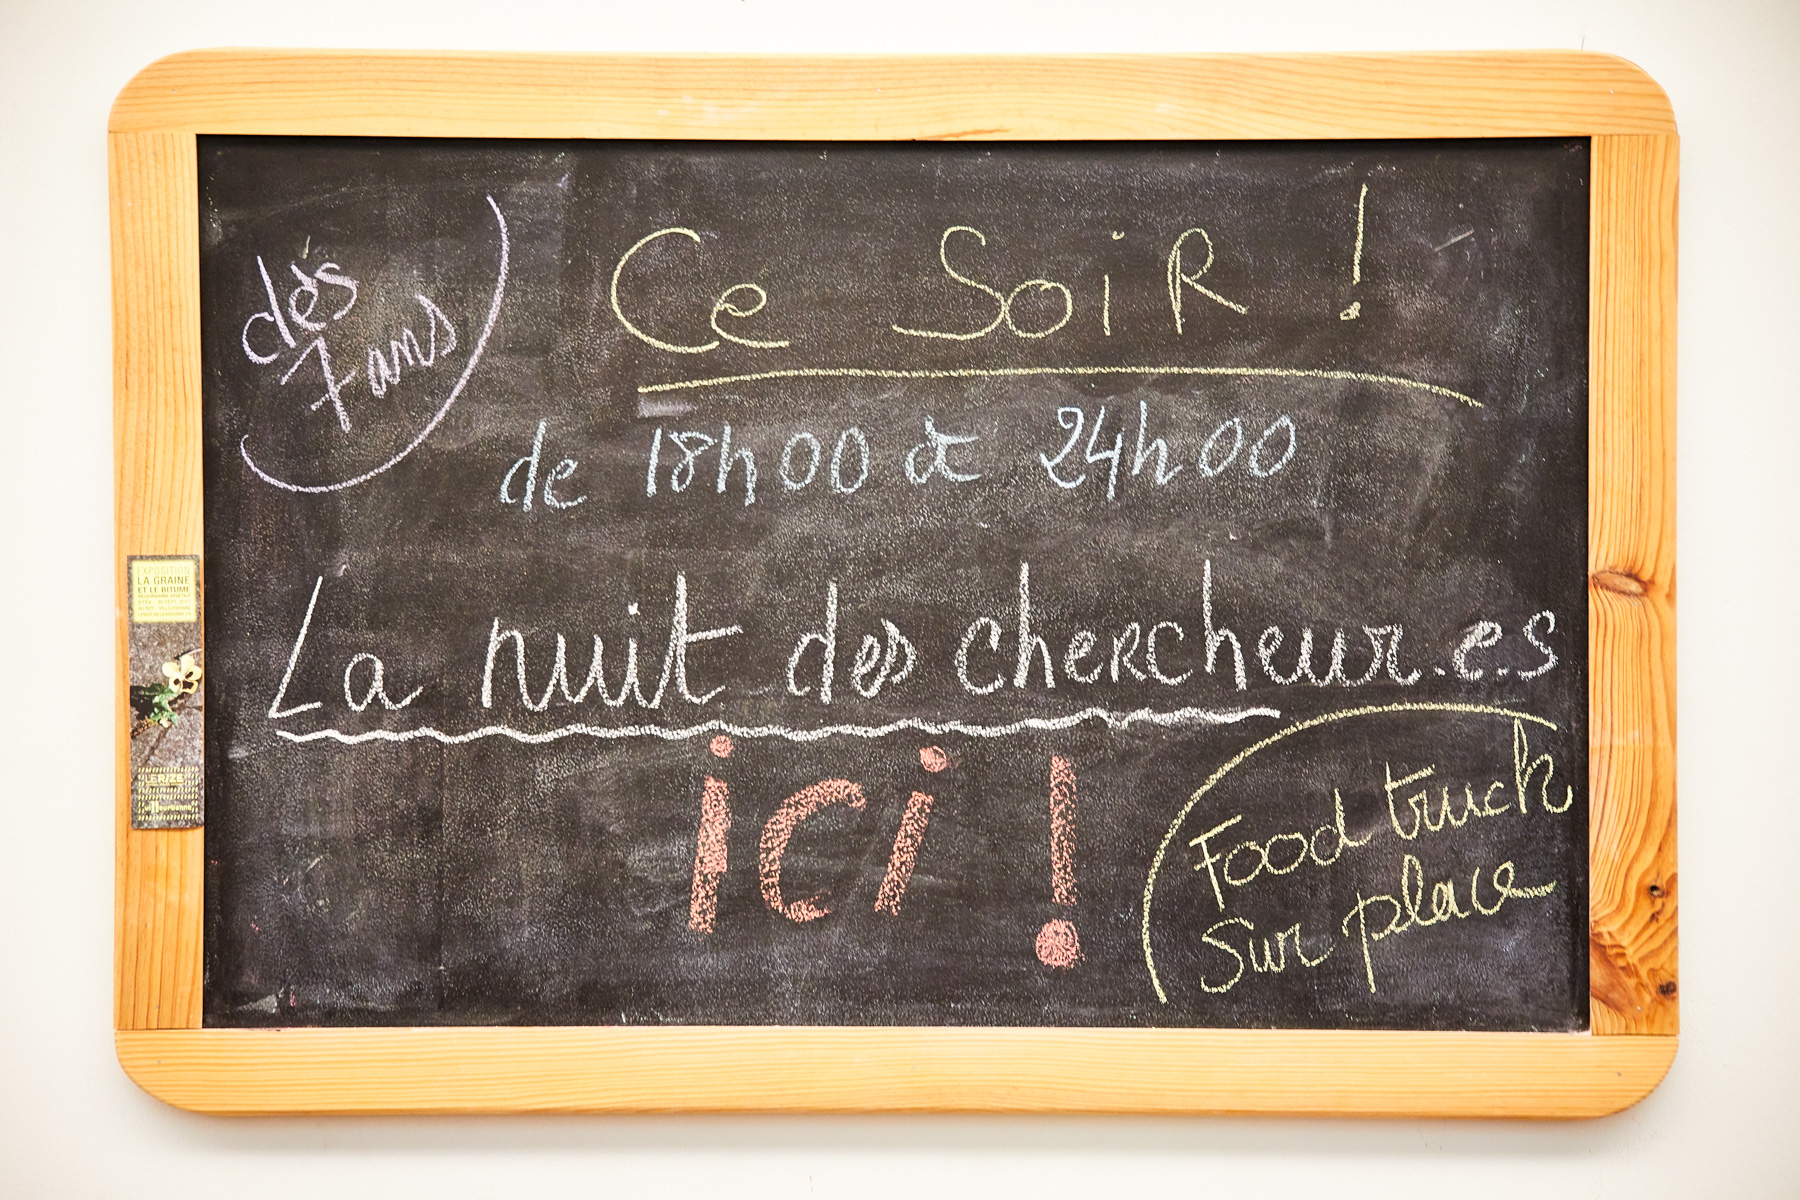 dès
7 ans
Ce SoiR !
de 18h00 à 24h00
La nuit des chercheur.e.s
ici !
Food truck
sur place
EXPOSITION
LA GRAINE
ET LE BITUME
LE RIZE